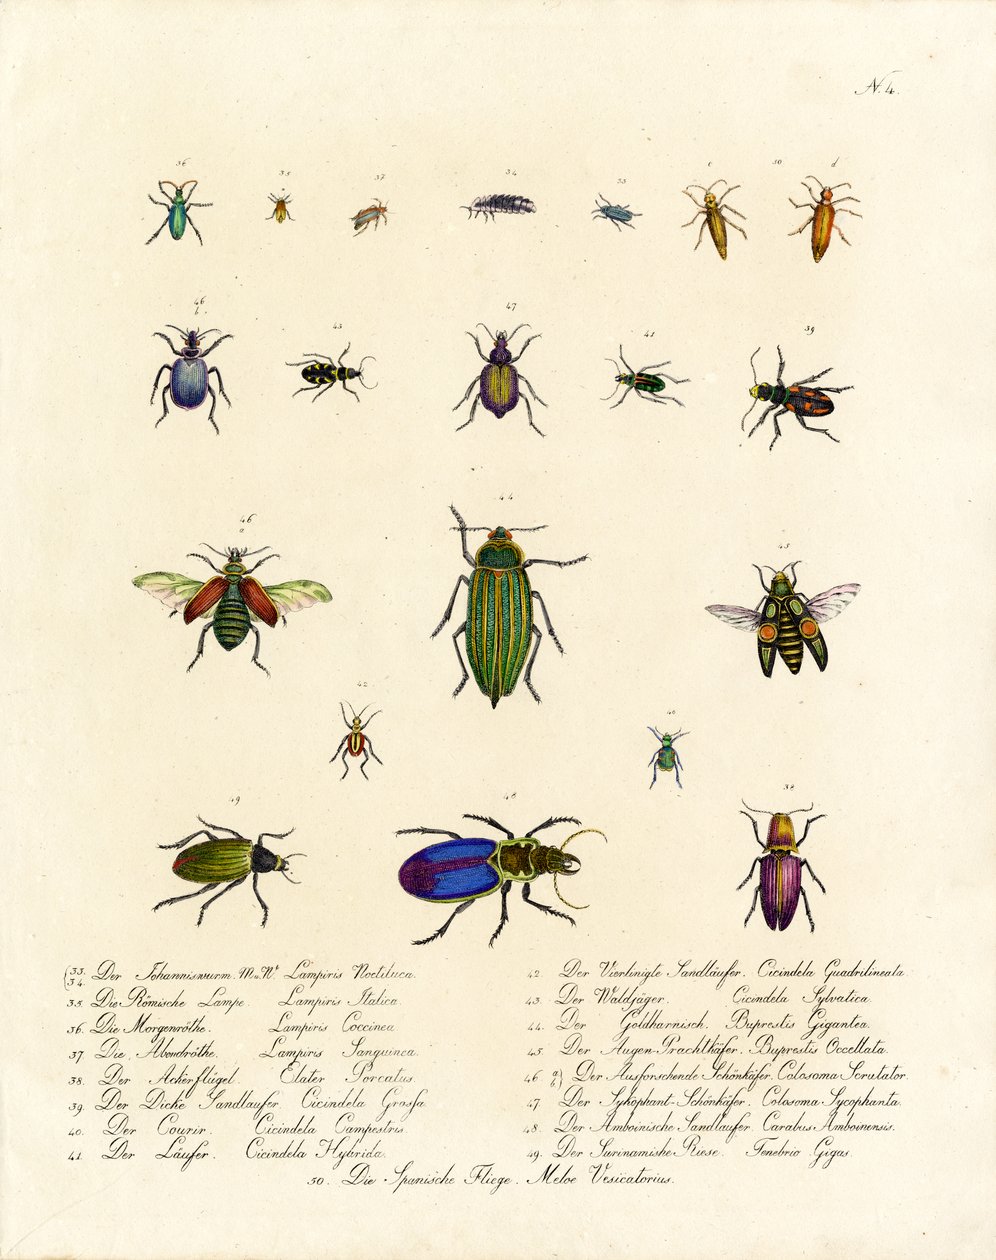 N. 4.
36 35 37 34 33 c 50 d
46 b. 43 47 41 39
46 a 44 45
42 40
49 48 38
33. 34. Der Johanniswurm. M. u. W. Lampiris Noctiluca.
35. Die Römische Lampe. Lampiris Italica.
36. Die Morgenröthe. Lampiris Coccinea
37 Die Abendröthe. Lampiris Sanguinea.
38. Der Ackerflügel. Elater Porcatus.
39. Der Dicke Sandlaufer Cicindela Grossa
40. Der Courir. Cicindela Campestris.
41 Der Läufer. Cicindela Hybrida.
42. Der Vierlinigte Sandläufer. Cicindela Quadrilineala.
43. Der Waldjäger. Cicindela Sylvatica.
44. Der Goldharnisch. Buprestis Gigantea.
45. Der Augen-Prachtkäfer. Buprestis Occellata.
46 a b) Der Ausforschende Schönkäfer. Colosoma Scrutator.
47. Der Sykophant-Schönkäfer. Colosoma Sycophanta.
48. Der Amboinische Sandläufer. Carabus Amboinensis.
49. Der Surinamishe Riese. Tenebrio Gigas.
50. Die Spanische Fliege. Meloe Vesicatorius.